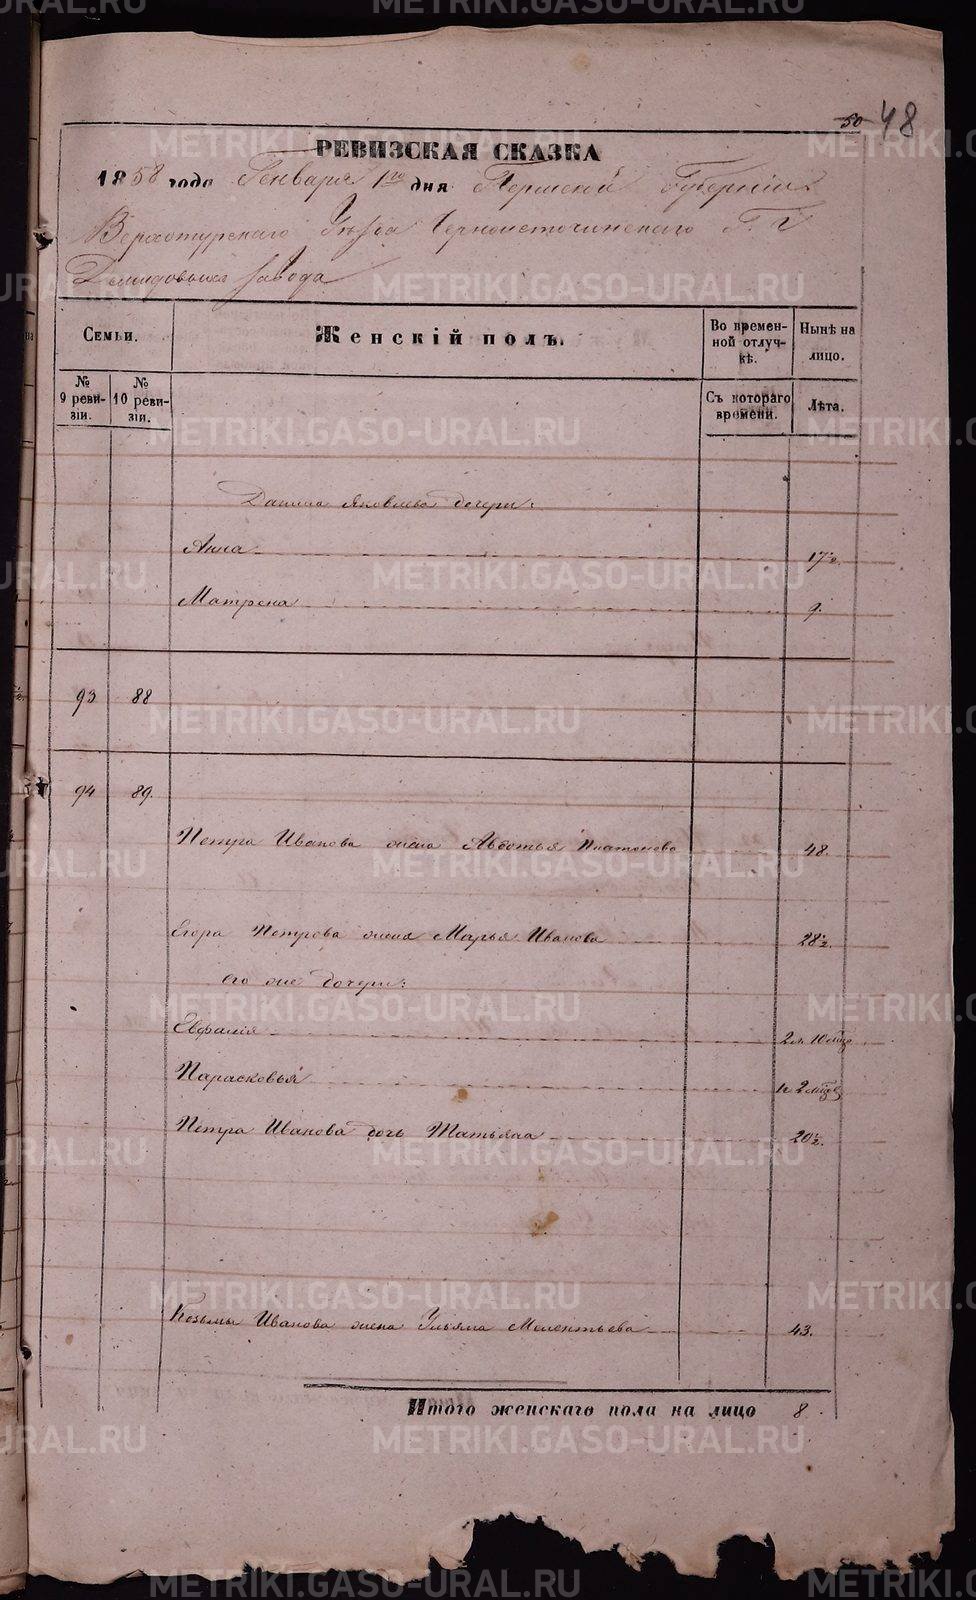 50 48
РЕВИЗСКАЯ СКАЗКА
1858 года Генваря 1го дня Пермской Губерніи
Верхотурскаго Уѣзда Черноисточинскаго Г.г.
Демидовыхъ завода
Семьи.
Женскій полъ.
Во времен-
ной отлуч-
кѣ.
Нынѣ на
лицо.
№
9 реви-
зіи.
№
10 реви-
зіи.
Съ котораго
времени.
Лѣта.
Данила Яковлева дочери:
Анна 17½.
Матрена 9.
93 88
94 89.
Петра Иванова жена Авдотья Платонова 48.
Егора Петрова жена Марья Иванова 28½.
его же дочери:
Евфалія 2 л. 10 мѣц
Парасковья 1 г. 2 мѣц
Петра Иванова дочь Татьяна 20½.
Козьмы Иванова жена Ульяна Мелентьева 43.
Итого женскаго пола на лицо 8.
METRIKI.GASO-URAL.RU